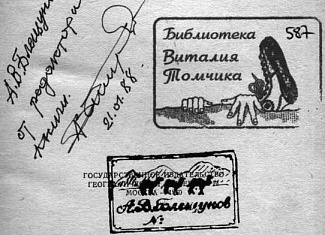 А.В. Блещуно
от редактора
книги.
21.01.88.
587
Библиотека
Виталия
Томчика
ГОСУДАРСТВЕННОЕ ИЗДАТЕЛЬСТВО
МОСКВА
А.В. Блещунов
№